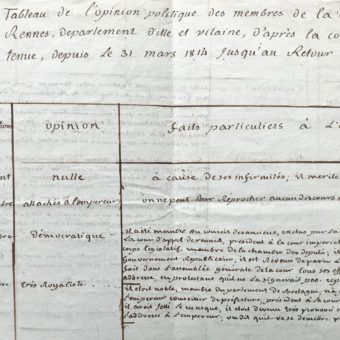 Tableau de l'opinion politique des membres de la
Rennes, departement d'ille et vilaine, d'après la co
tenue, depuis le 31 mars 1814 jusqu'au Retour
opinion
faits particuliers à l'a
nulle
à cause de ses infirmités, il merite
attachés à l'empereur
on ne peut leur Reprocher aucun discours
démocratique
il a été membre du conseil des anciens, exclus par
la cour d'appel de rennes, président à la cour imperial
corps legislatif, membre de la chambre des deputés,
Gouvernement Republicain, il est
fait dans l'assemblée generale de la cour tous ses eff
addresse, en protestant qu'il ne la signerait pas.
très Royaliste
il etoit noble, membre du parlement de Bretagne,
l'empereur conseiller de prefecture, président à la cour
il avoit jetté le masque, il etoit devenu très prononcé
l'addresse à l'empereur. on dit qu'il va se demettre